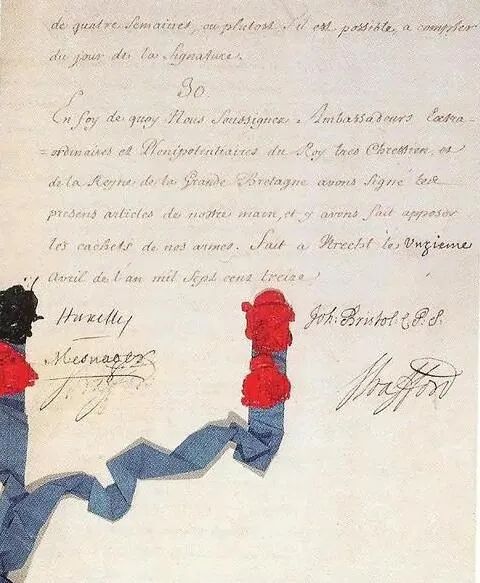 de quatre Semaines, ou plutost s'il est possible, a compter
du jour de la Signature.
30
En foy de quoy Nous Soussignez Ambassadeurs Extra-
=ordinaires et Plenipotentiaires du Roy tres Chrestien, et
de la Reyne de la Grande Bretagne avons signé les
presens articles de nostre main, et y avons fait apposer
les cachets de nos armes. Fait a Utrecht le Unzieme
Avril de l'an mil sept cent treize
Huxelles
Joh. Bristol. C.P.S.
Mesnager
Strafford